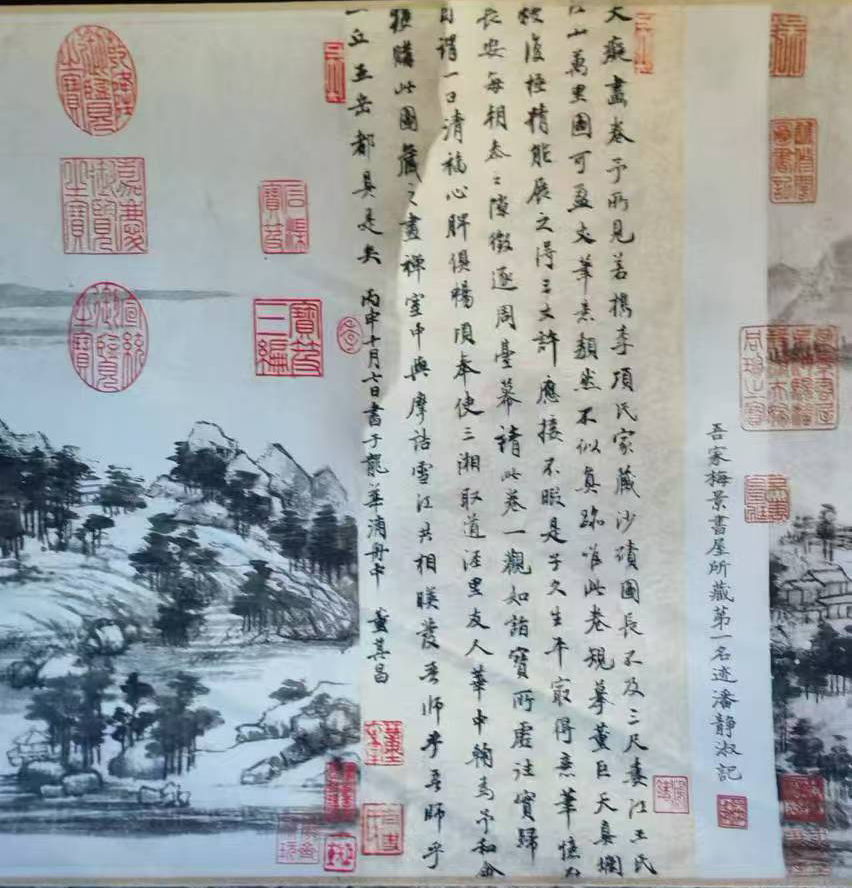 吾家梅景書屋所藏第一名迹潘靜淑記
大癡畫卷予所見若檇李項氏家藏沙磧圖長不及三尺婁江王氏
江山萬里圖可盈丈筆意頹然不似真跡唯此卷規摹董巨天真爛
復極精能展之得三丈許應接不暇是子久生平最得意筆憶在
長安每朝參之隙徵逐周臺幕請此卷一觀如詣寶所虛往實歸
自謂一日清福心脾俱暢頃奉使三湘取道涇里友人華中翰為予和會
獲購此圖藏之畫禪室中與摩詰雪江共相映發吾師乎吾師乎
一丘五岳都具是矣 丙申十月七日書于龍華浦舟中 董其昌
石渠寶笈
寶笈三編
嘉慶御覽之寶
宣統御覽之寶